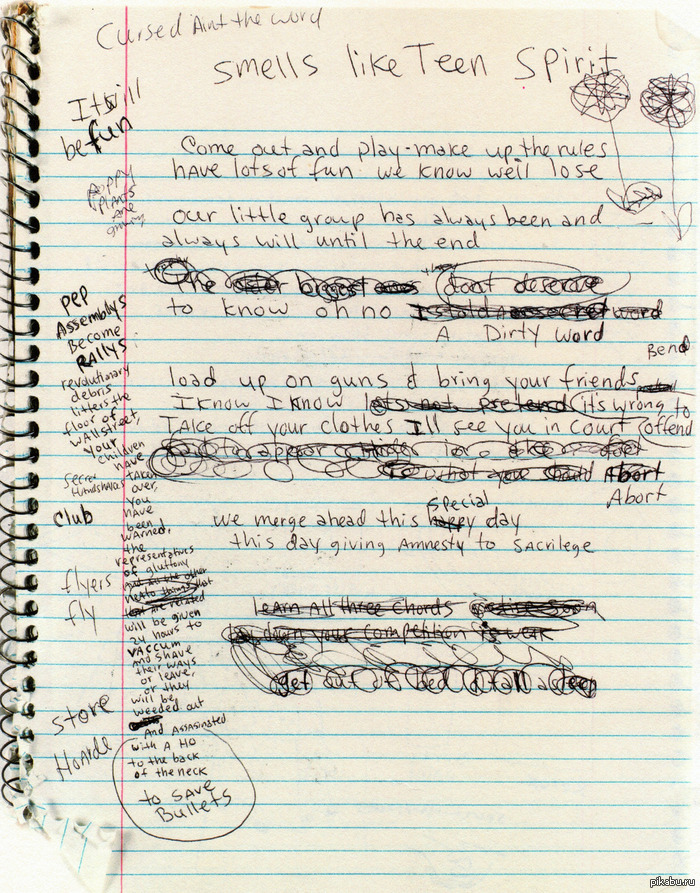 Cursed Aint the word
smells like Teen Spirit
It will
be fun
Come out and play - make up the rules
have lots of fun we know we'll lose
poppy
plants
are
growing
our little group has always been and
always will until the end
The biggest dont deserve
to know oh no Is told a secret word
A Dirty word
Bend
load up on guns & bring your friends
I know I know lets not pretend its wrong to
TAke off your clothes Ill see you in court offend
to what you should Abort
Abort
special
we merge ahead this happy day
this day giving Amnesty to SAcrilege
learn All three chords
down your competition is weak
get out of bed
pep
Assemblys
Become
RAllys
revolutionary
debris
litters the
floor of
WAllstreet,
your
children
have
taken
over,
you
have
been
warned,
the
representatives
of gluttony
And All the other
related
will be given
24 hours to
VAccum
and shave
their ways
or leave,
or they
will be
weeded out
And Assasinated
with A Ho
to the back
of the neck
to SAve
Bullets
secret
club
flyers
fly
store
HoArde
pikabu.ru